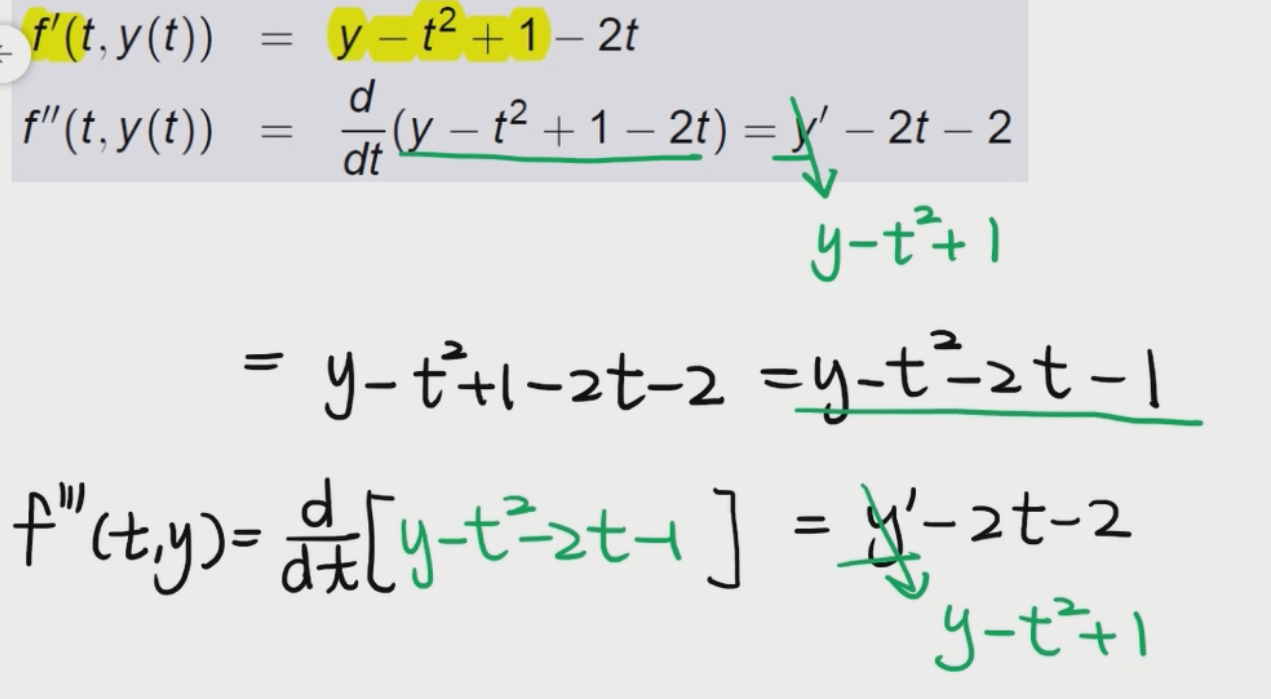 f′(t, y(t)) = y − t² + 1 − 2t
f″(t, y(t)) = d/dt (y − t² + 1 − 2t) = y′ − 2t − 2
y-t²+1
= y-t²+1-2t-2 = y-t²-2t-1
f‴(t,y) = d/dt [y-t²-2t-1] = y′-2t-2
y-t²+1